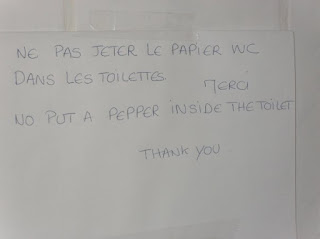 NE PAS JETER LE PAPIER WC
DANS LES TOILETTES.
MERCI
NO PUT A PEPPER INSIDE THE TOILET
THANK YOU